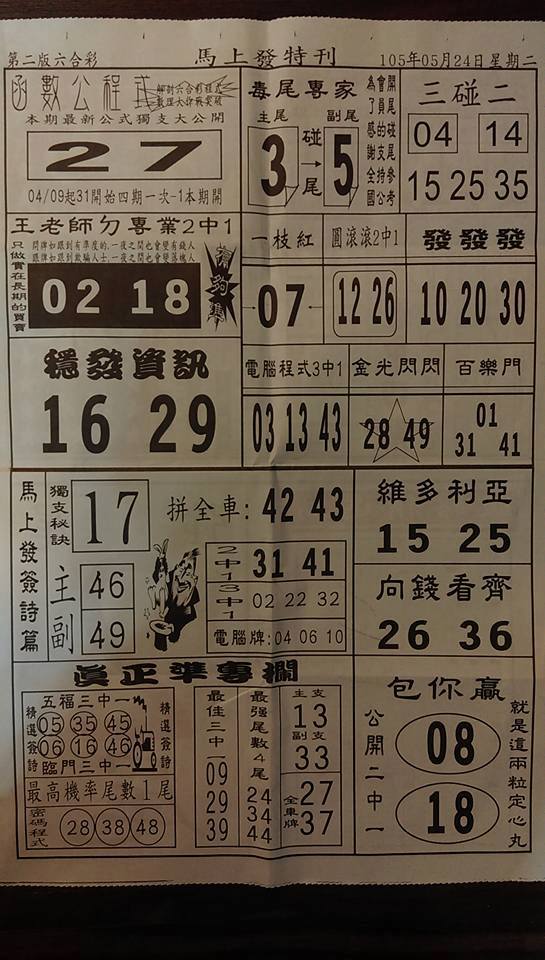 第二版六合彩
馬上發特刊
105年05月24日星期二
函數公程式
解封六合彩程式
本期最新公式獨支大公開
27
04/09起31開始四期一次-1本期開
毒尾專家
主尾
碰
副尾
3
→
5
尾
開尾碰尾參考
會員的支持公
為了感謝全國
三碰二
04 14
15 25 35
王老師ㄉ專業2中1
只做實在長期的買賣
問牌如跟到有準度的.一夜之間也會變有錢人
跟牌如跟到欺騙人士.一夜之間也會變落魄人
02 18
有夠準
一枝紅
07
圓滾滾2中1
12 26
發發發
10 20 30
穩發資訊
16 29
電腦程式3中1
03 13 43
金光閃閃
28 49
百樂門
01
31 41
馬上發簽詩篇
獨支秘訣
17
主 46
副 49
拼全車: 42 43
2中1
31 41
3中1
02 22 32
電腦牌: 04 06 10
維多利亞
15 25
向錢看齊
26 36
眞正準專欄
五福三中一
精選簽詩
05 35 45
06 16 46
精選簽詩
臨門三中一
最高機率尾數1尾
密碼程式
28 38 48
最佳三中一
09
29
39
最強尾數4尾
24
34
44
主支
13
副支
33
全車牌
27
37
包你贏
公開二中一
08
18
就是這兩粒定心丸